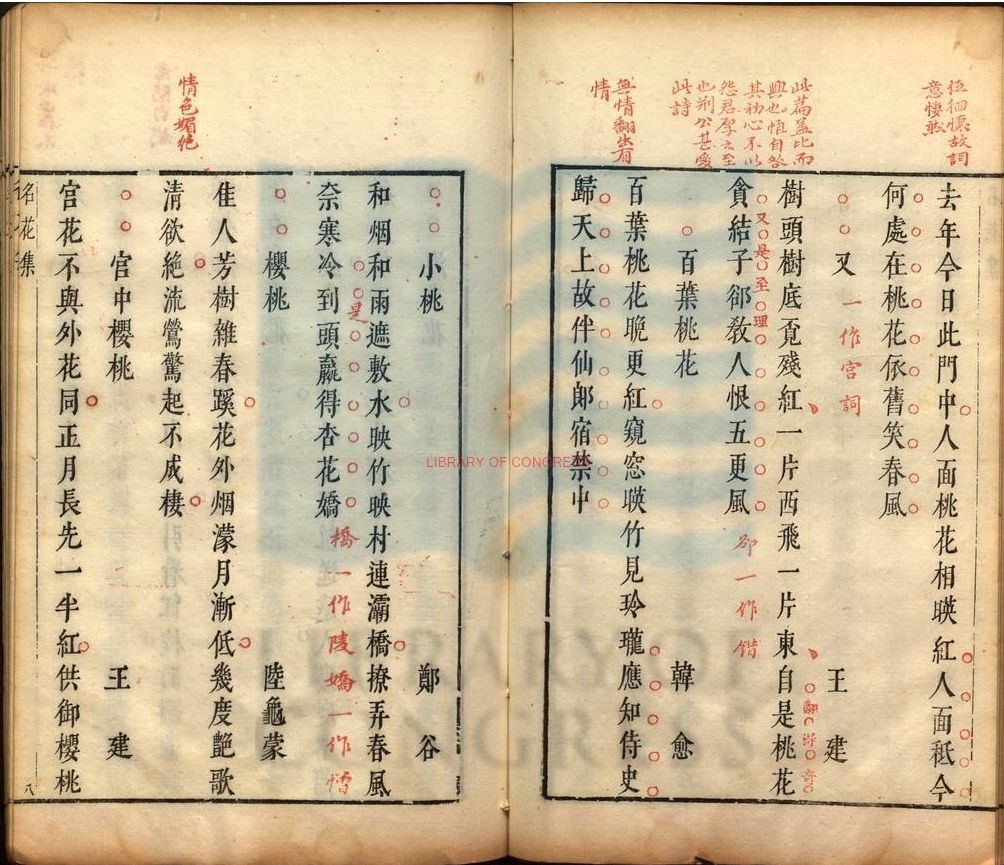 伍徊懷故詞
意悽
去年今日此門中人面桃花相暎紅人面秪今
何處在桃花依舊笑春風
又 一作宮詞 王建
此篇蓋比而
興也恒自咎
其初心不以
怨君厚之至
也荊公甚愛
此詩
樹頭樹底覔殘紅一片西飛一片東自是桃花
貪結子郤敎人恨五更風 郤一作錯
翻案奇
又是至理
百葉桃花 韓愈
無情翻出有
情
百葉桃花晩更紅窺窓暎竹見玲瓏應知侍史
歸天上故伴仙郞宿禁中
小桃 鄭谷
和烟和雨遮敷水映竹映村連灞橋撩弄春風
奈寒冷到頭贏得杏花嬌 橋一作陵嬌一作憎
是
櫻桃 陸龜蒙
情色媚絕
佳人芳樹雜春蹊花外烟濛月漸低幾度艶歌
清欲絶流鶯驚起不成棲
宮中櫻桃 王建
宮花不與外花同正月長先一半紅供御櫻桃
名花集 八
LIBRARY OF CONGRESS